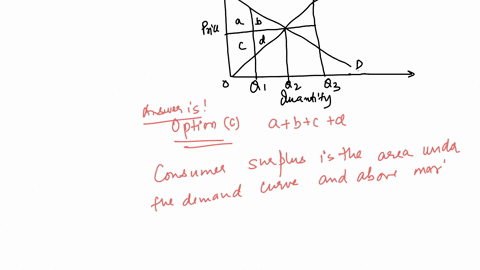 a b
Price
c d
D
O Q1 Q2 Q3
Quantity
Answer is!
Option (c) a+b+c+d
Consumer surplus is the area unda
the demand curve and above mar